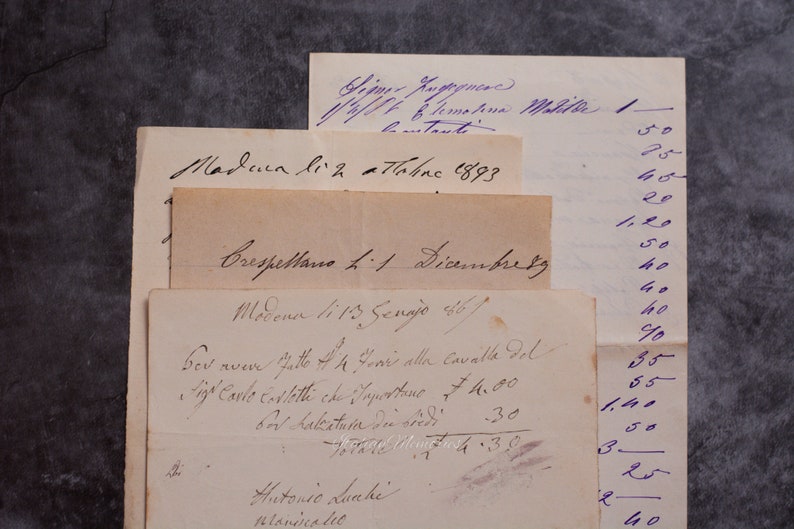 Signor Ingegnere
Elemosina Matilde 1 —
Contanti 50
85
45
20
1.20
50
40
40
40
70
35
55
1.40
50
3 —
25
2 —
40
Modena li 2 ottobre 1893
Crespellano li 1 Dicembre 89
Modena li 13 Genajo 867
Per avere Fatto N 4 Ferri alla Cavalla del
Sigr Carlo Carlotti che Importano £ 4.00
Per dei Piedi .30
Totale £ 4.30
Antonio Lucchi
Maniscalco